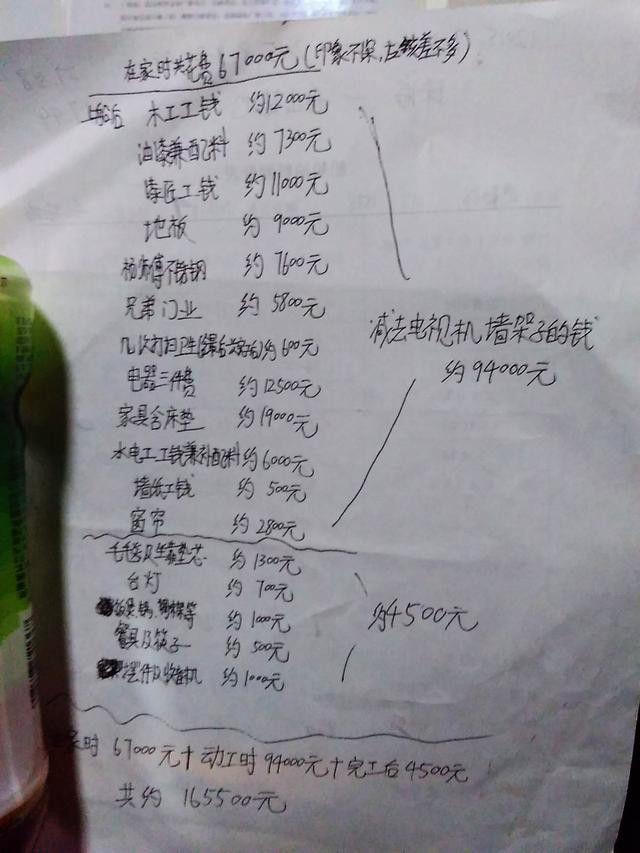 在家时共花费67000元(印象不深,应该差不多)
木工工钱 约12000元
油漆兼配料 约7300元
漆匠工钱 约11000元
地板 约9000元
不锈钢 约7600元
兄弟门业 约5800元
几次打扫卫生 约600元
电器三件费 约12500元
家具含床垫 约19000元
水电工工钱兼补配料约6000元
墙纸工钱 约500元
窗帘 约2800元
减法电视机墙架子的钱
约94000元
约1300元
台灯 约700元
约1000元
餐具及筷子 约500元
约1000元
约4500元
家时67000元+动工时94000元+完工后4500元
共约165500元